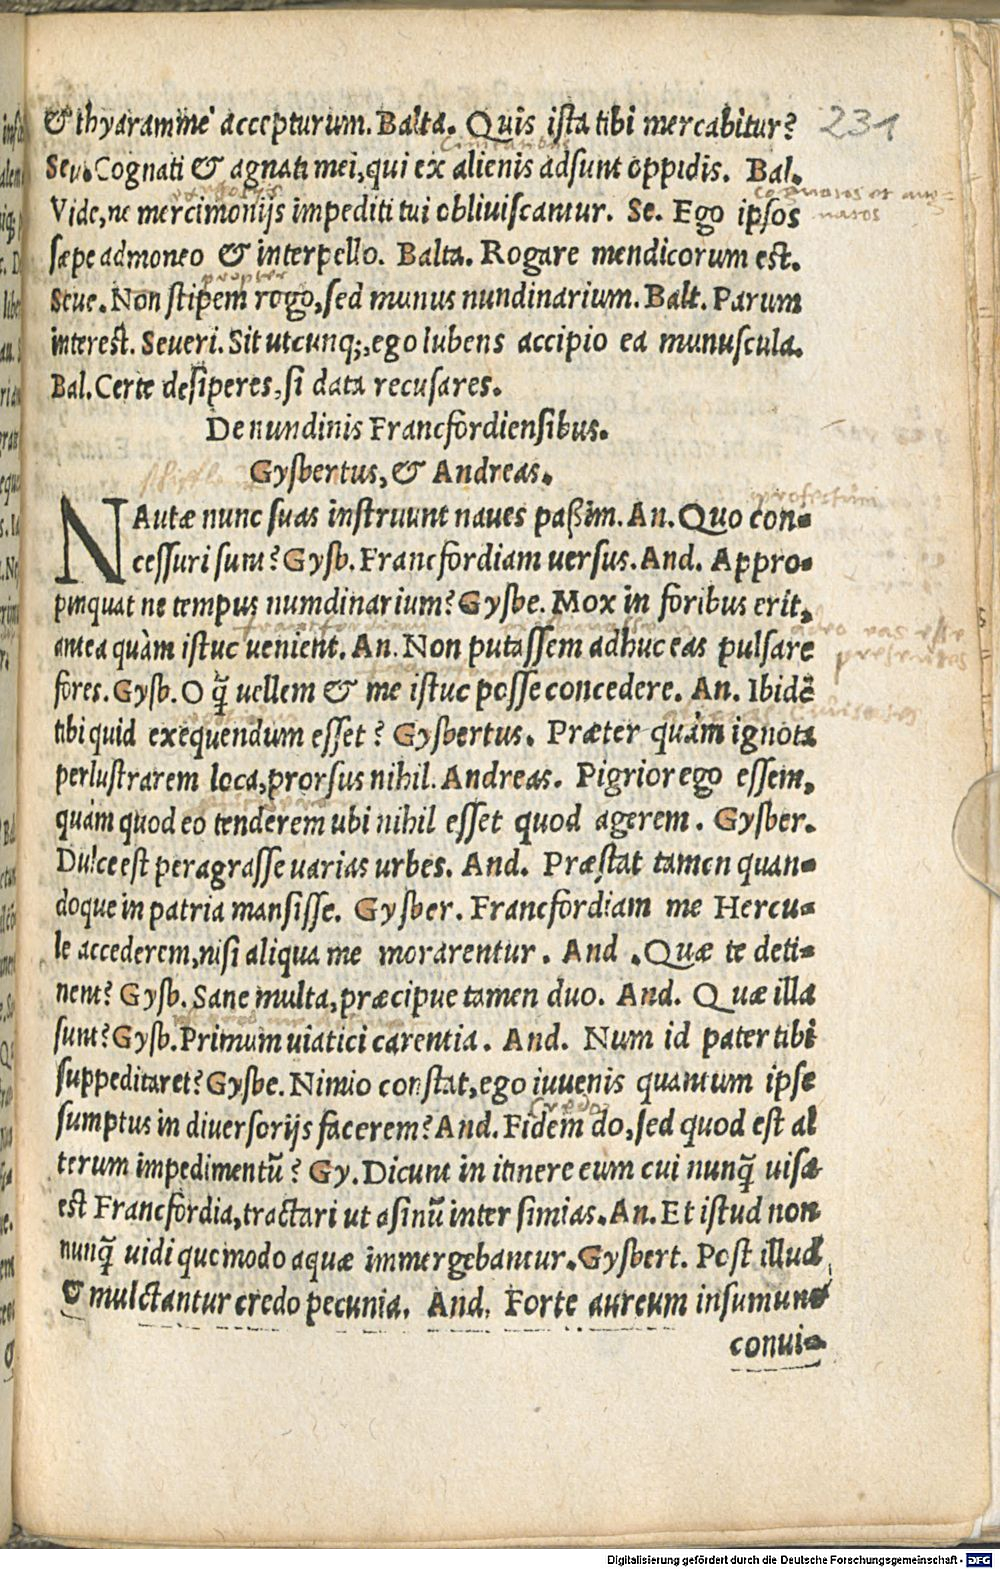 & thyaram me' accepturum. Balta. Quis ista tibi mercabitur? 231
Seu. Cognati & agnati mei, qui ex alienis adsunt oppidis. Bal.
Vide, ne mercimonijs impediti tui obliuiscantur. Se. Ego ipsos
sæpe admoneo & interpello. Balta. Rogare mendicorum est.
propter
Seue. Non stipem rogo, sed munus nundinarium. Balt. Parum
interest. Seueri. Sit utcunq;, ego lubens accipio ea munuscula.
Bal. Certe desiperes, si data recusares.
De nundinis Francfordiensibus.
Gysbertus, & Andreas.
profecturi
NAutæ nunc suas instruunt naues paßim. An. Quo con-
cessuri sunt? Gysb. Francfordiam uersus. And. Appro-
pinquat ne tempus numdinarium? Gysbe. Mox in foribus erit,
antea quàm istuc uenient. An. Non putassem adhuc eas pulsare
adeo eas esse
presentes
fores. Gysb. O q̃ uellem & me istuc posse concedere. An. Ibidē
tibi quid exequendum esset? Gysbertus. Præter quàm ignota
perlustrarem loca, prorsus nihil. Andreas. Pigrior ego essem,
quàm quod eo tenderem ubi nihil esset quod agerem. Gysber.
Dulce est peragrasse uarias urbes. And. Præstat tamen quan-
doque in patria mansisse. Gysber. Francfordiam me Hercu-
le accederem, nisi aliqua me morarentur. And. Quæ te deti-
nent? Gysb. Sane multa, præcipue tamen duo. And. Quæ illa
sunt? Gysb. Primum uiatici carentia. And. Num id pater tibi
suppeditaret? Gysbe. Nimio constat, ego iuuenis quantum ipse
credo
sumptus in diuersorijs facerem? And. Fidem do, sed quod est al
terum impedimentū? Gy. Dicunt in itinere eum cui nunq̃ uisa
est Francfordia, tractari ut asinū inter simias. An. Et istud non
nunq̃ uidi quomodo aquæ immergebantur. Gysbert. Post illud
& mulctantur credo pecunia. And. Forte aureum insumunt
conui-
Digitalisierung gefördert durch die Deutsche Forschungsgemeinschaft - DFG